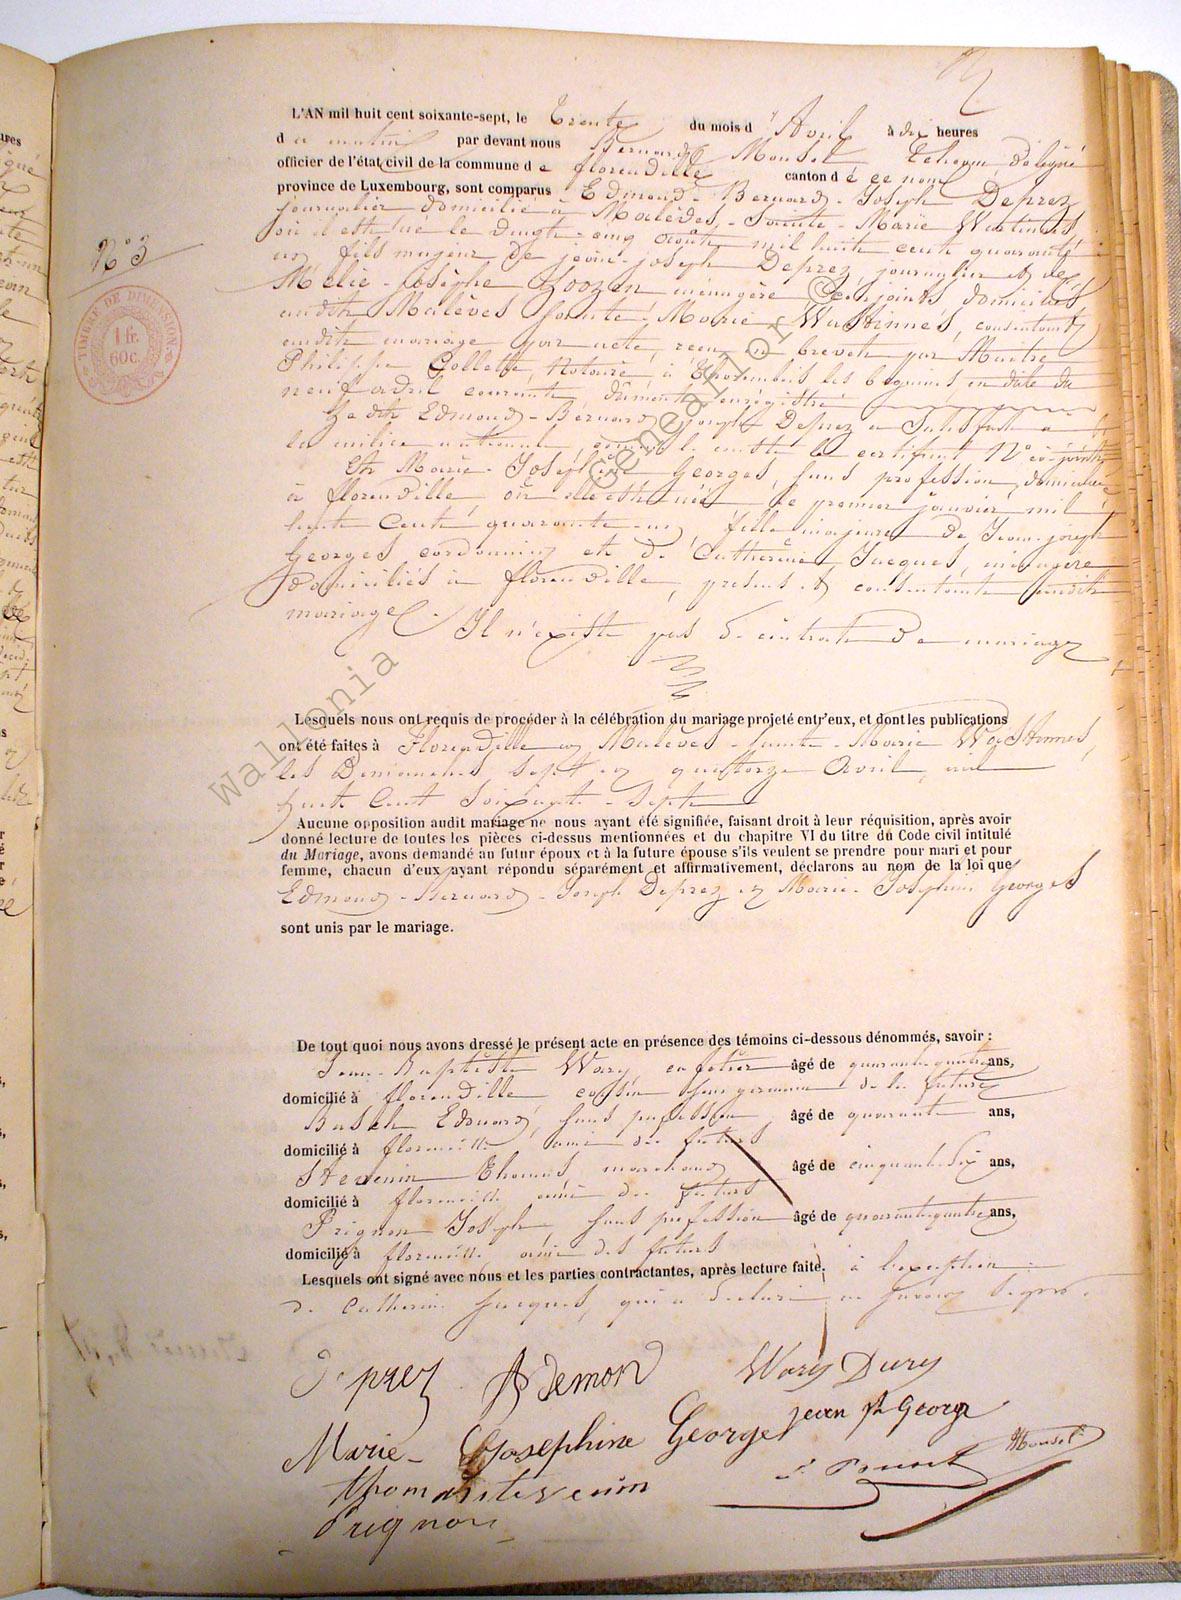 L'AN mil huit cent soixante-sept, le Trente du mois d'Avril à dix heures
d u matin par devant nous Bernard Monsel Echevin délégué
officier de l'état civil de la commune d e florenville canton d e ce nom
province de Luxembourg, sont comparus Edmond-Bernard-Joseph Deprez
journalier domicilié à Malèves-Sainte-Marie Wastines
où il est né le vingt-cinq août mil huit cent quarante
un fils majeur de jean-joseph Deprez journalier et de
Mélie-Josèphe Goozen ménagère conjoints domiciliés
audit Malèves Sainte-Marie Wastinnes, consentant
audit mariage par acte, reçu en brevet par Maître
Philippe Collette, Notaire à Thorembais les béguines, en date du
neuf avril courant dûment enregistré
Ledit Edmond-Bernard joseph Deprez a satisfait à
la milice nationale comme le constate le certificat N°
Et Marie-Joséphine Georges, sans profession, domiciliée
à florenville, où elle est née le premier janvier mil
huit cent quarante-un, fille majeure de Jean-joseph
Georges, cordonnier et de Catherine Jacques, ménagère
domiciliés à florenville, présents et consentants audit
mariage.
Il n'existe pas de contrat de mariage
N° 3
TIMBRE DE DIMENSION
1 fr.
60 c.
Lesquels nous ont requis de procéder à la célébration du mariage projeté entr'eux, et dont les publications
ont été faites à Florenville et Malèves-Sainte-Marie Wastinnes,
les Dimanches sept et quatorze Avril, mil
huit Cent Soixante-Sept
Aucune opposition audit mariage ne nous ayant été signifiée, faisant droit à leur réquisition, après avoir
donné lecture de toutes les pièces ci-dessus mentionnées et du chapitre VI du titre du Code civil intitulé
du Mariage, avons demandé au futur époux et à la future épouse s'ils veulent se prendre pour mari et pour
femme, chacun d'eux ayant répondu séparément et affirmativement, déclarons au nom de la loi que
Edmond-Bernard-Joseph Deprez et Marie-Joséphine Georges
sont unis par le mariage.
De tout quoi nous avons dressé le présent acte en présence des témoins ci-dessous dénommés, savoir :
Jean-Baptiste Wary, cafetier âgé de quarante quatre ans,
domicilié à florenville cousin sous germain de la future
Busch Edouard, sans profession âgé de quarante ans,
domicilié à florenville ami des futurs
Stevenin Thomas, marchand âgé de cinquante-six ans,
domicilié à florenville ami des futurs
Prignon Joseph sans profession âgé de quarante quatre ans,
domicilié à florenville ami des futurs
Lesquels ont signé avec nous et les parties contractantes, après lecture faite, à l'exception
de Catherine Jacques, qui a déclaré ne savoir signer.
Deprez Wary Dury
Marie-Josephine George jean jh George
Monsel
Thomas stevenin
Prignon
Wallonia Geneaflor ©